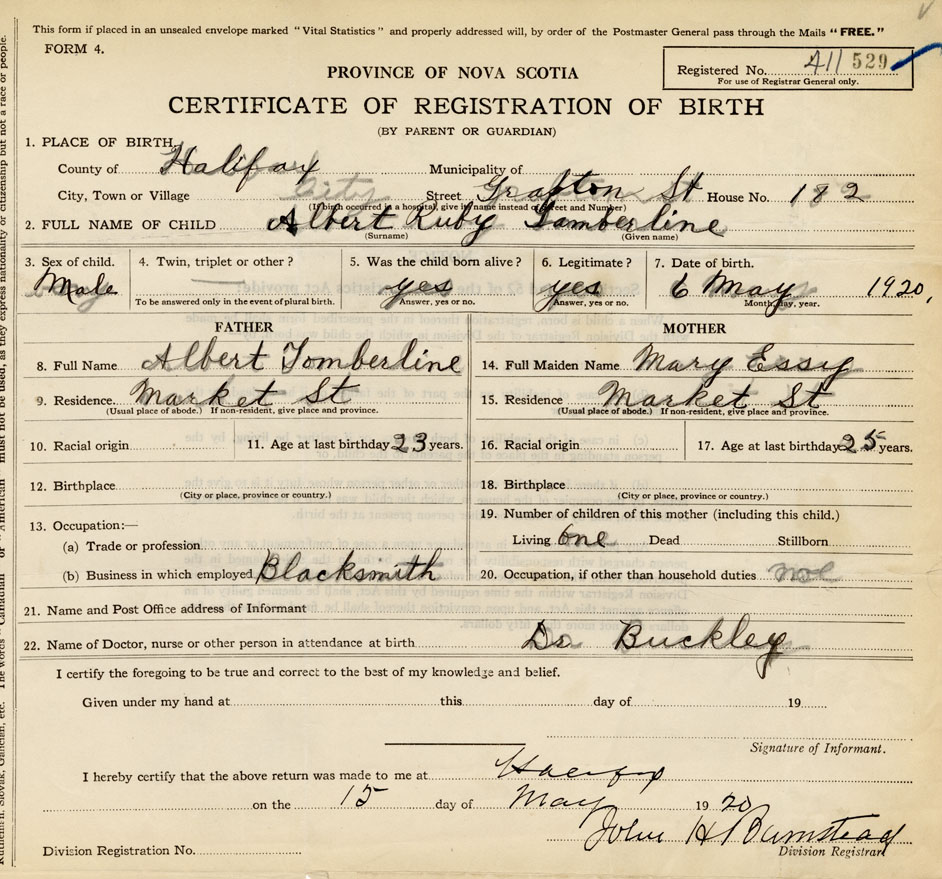 This form if placed in an unsealed envelope marked "Vital Statistics" and properly addressed will, by order of the Postmaster General pass through the Mails "FREE."
FORM 4.
Registered No. 411 529
For use of Registrar General only.
PROVINCE OF NOVA SCOTIA
CERTIFICATE OF REGISTRATION OF BIRTH
(BY PARENT OR GUARDIAN)
1. PLACE OF BIRTH,
County of Halifax Municipality of
City, Town or Village City Street Grafton St House No. 182
(If birth occurred in a hospital, give its name instead of Street and Number)
2. FULL NAME OF CHILD Albert Ruby Tomberline
(Surname) (Given name)
3. Sex of child. 4. Twin, triplet or other? 5. Was the child born alive? 6. Legitimate? 7. Date of birth.
Male yes yes 6 May 1920,
To be answered only in the event of plural birth. Answer, yes or no. Answer, yes or no. Month, day, year.
FATHER MOTHER
8. Full Name Albert Tomberline 14. Full Maiden Name Mary Essy
9. Residence Market St 15. Residence Market St
(Usual place of abode.) If non-resident, give place and province. (Usual place of abode.) If non-resident, give place and province.
10. Racial origin 11. Age at last birthday 23 years. 16. Racial origin 17. Age at last birthday 25 years.
12. Birthplace 18. Birthplace
(City or place, province or country.) (City or place, province or country.)
13. Occupation:— 19. Number of children of this mother (including this child.)
(a) Trade or profession Living one Dead Stillborn
(b) Business in which employed Blacksmith 20. Occupation, if other than household duties
21. Name and Post Office address of Informant
22. Name of Doctor, nurse or other person in attendance at birth Dr Buckley
I certify the foregoing to be true and correct to the best of my knowledge and belief.
Given under my hand at this day of 19
Signature of Informant.
I hereby certify that the above return was made to me at Halifax
on the 15 day of May 1920
John H Bumstead
Division Registration No. Division Registrar